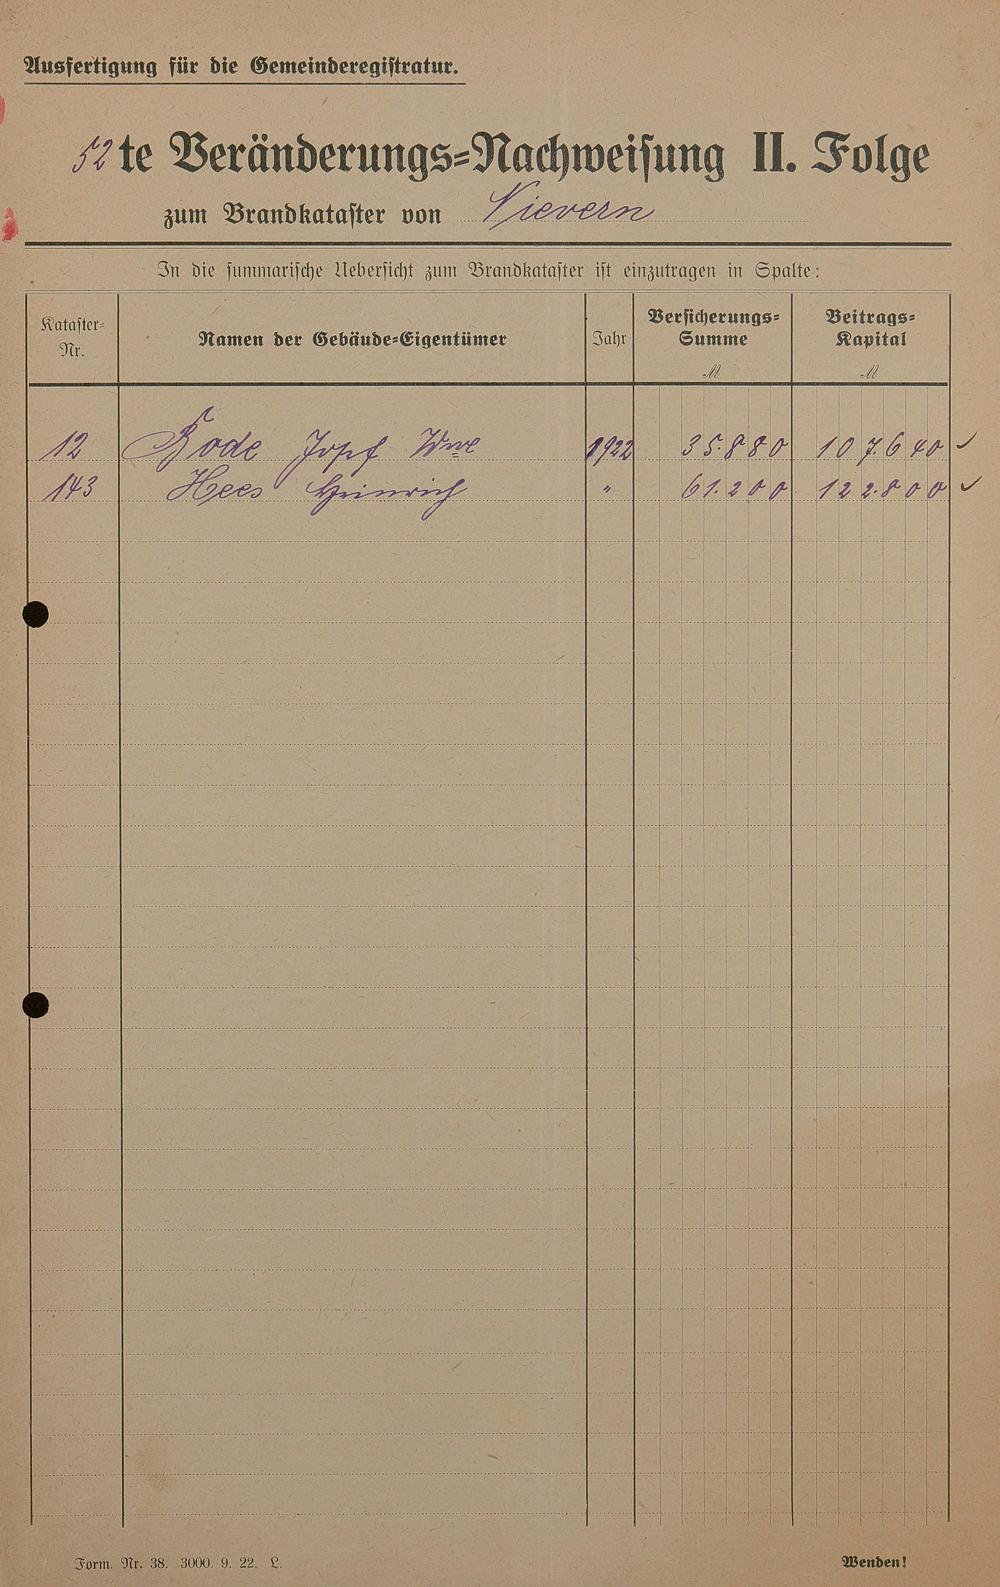 Ausfertigung für die Gemeinderegistratur.
52te Veränderungs=Nachweisung II. Folge
zum Brandkataster von Nievern
In die summarische Uebersicht zum Brandkataster ist einzutragen in Spalte:
Kataster=Nr. Namen der Gebäude=Eigentümer Jahr Versicherungs=Summe M Beitrags=Kapital M
12 Bode Josef Wwe 1922 35.880 107.640 ✓
143 Hees Heinrich " 61.200 122.800 ✓
Form. Nr. 38. 3000. 9. 22. L. Wenden!